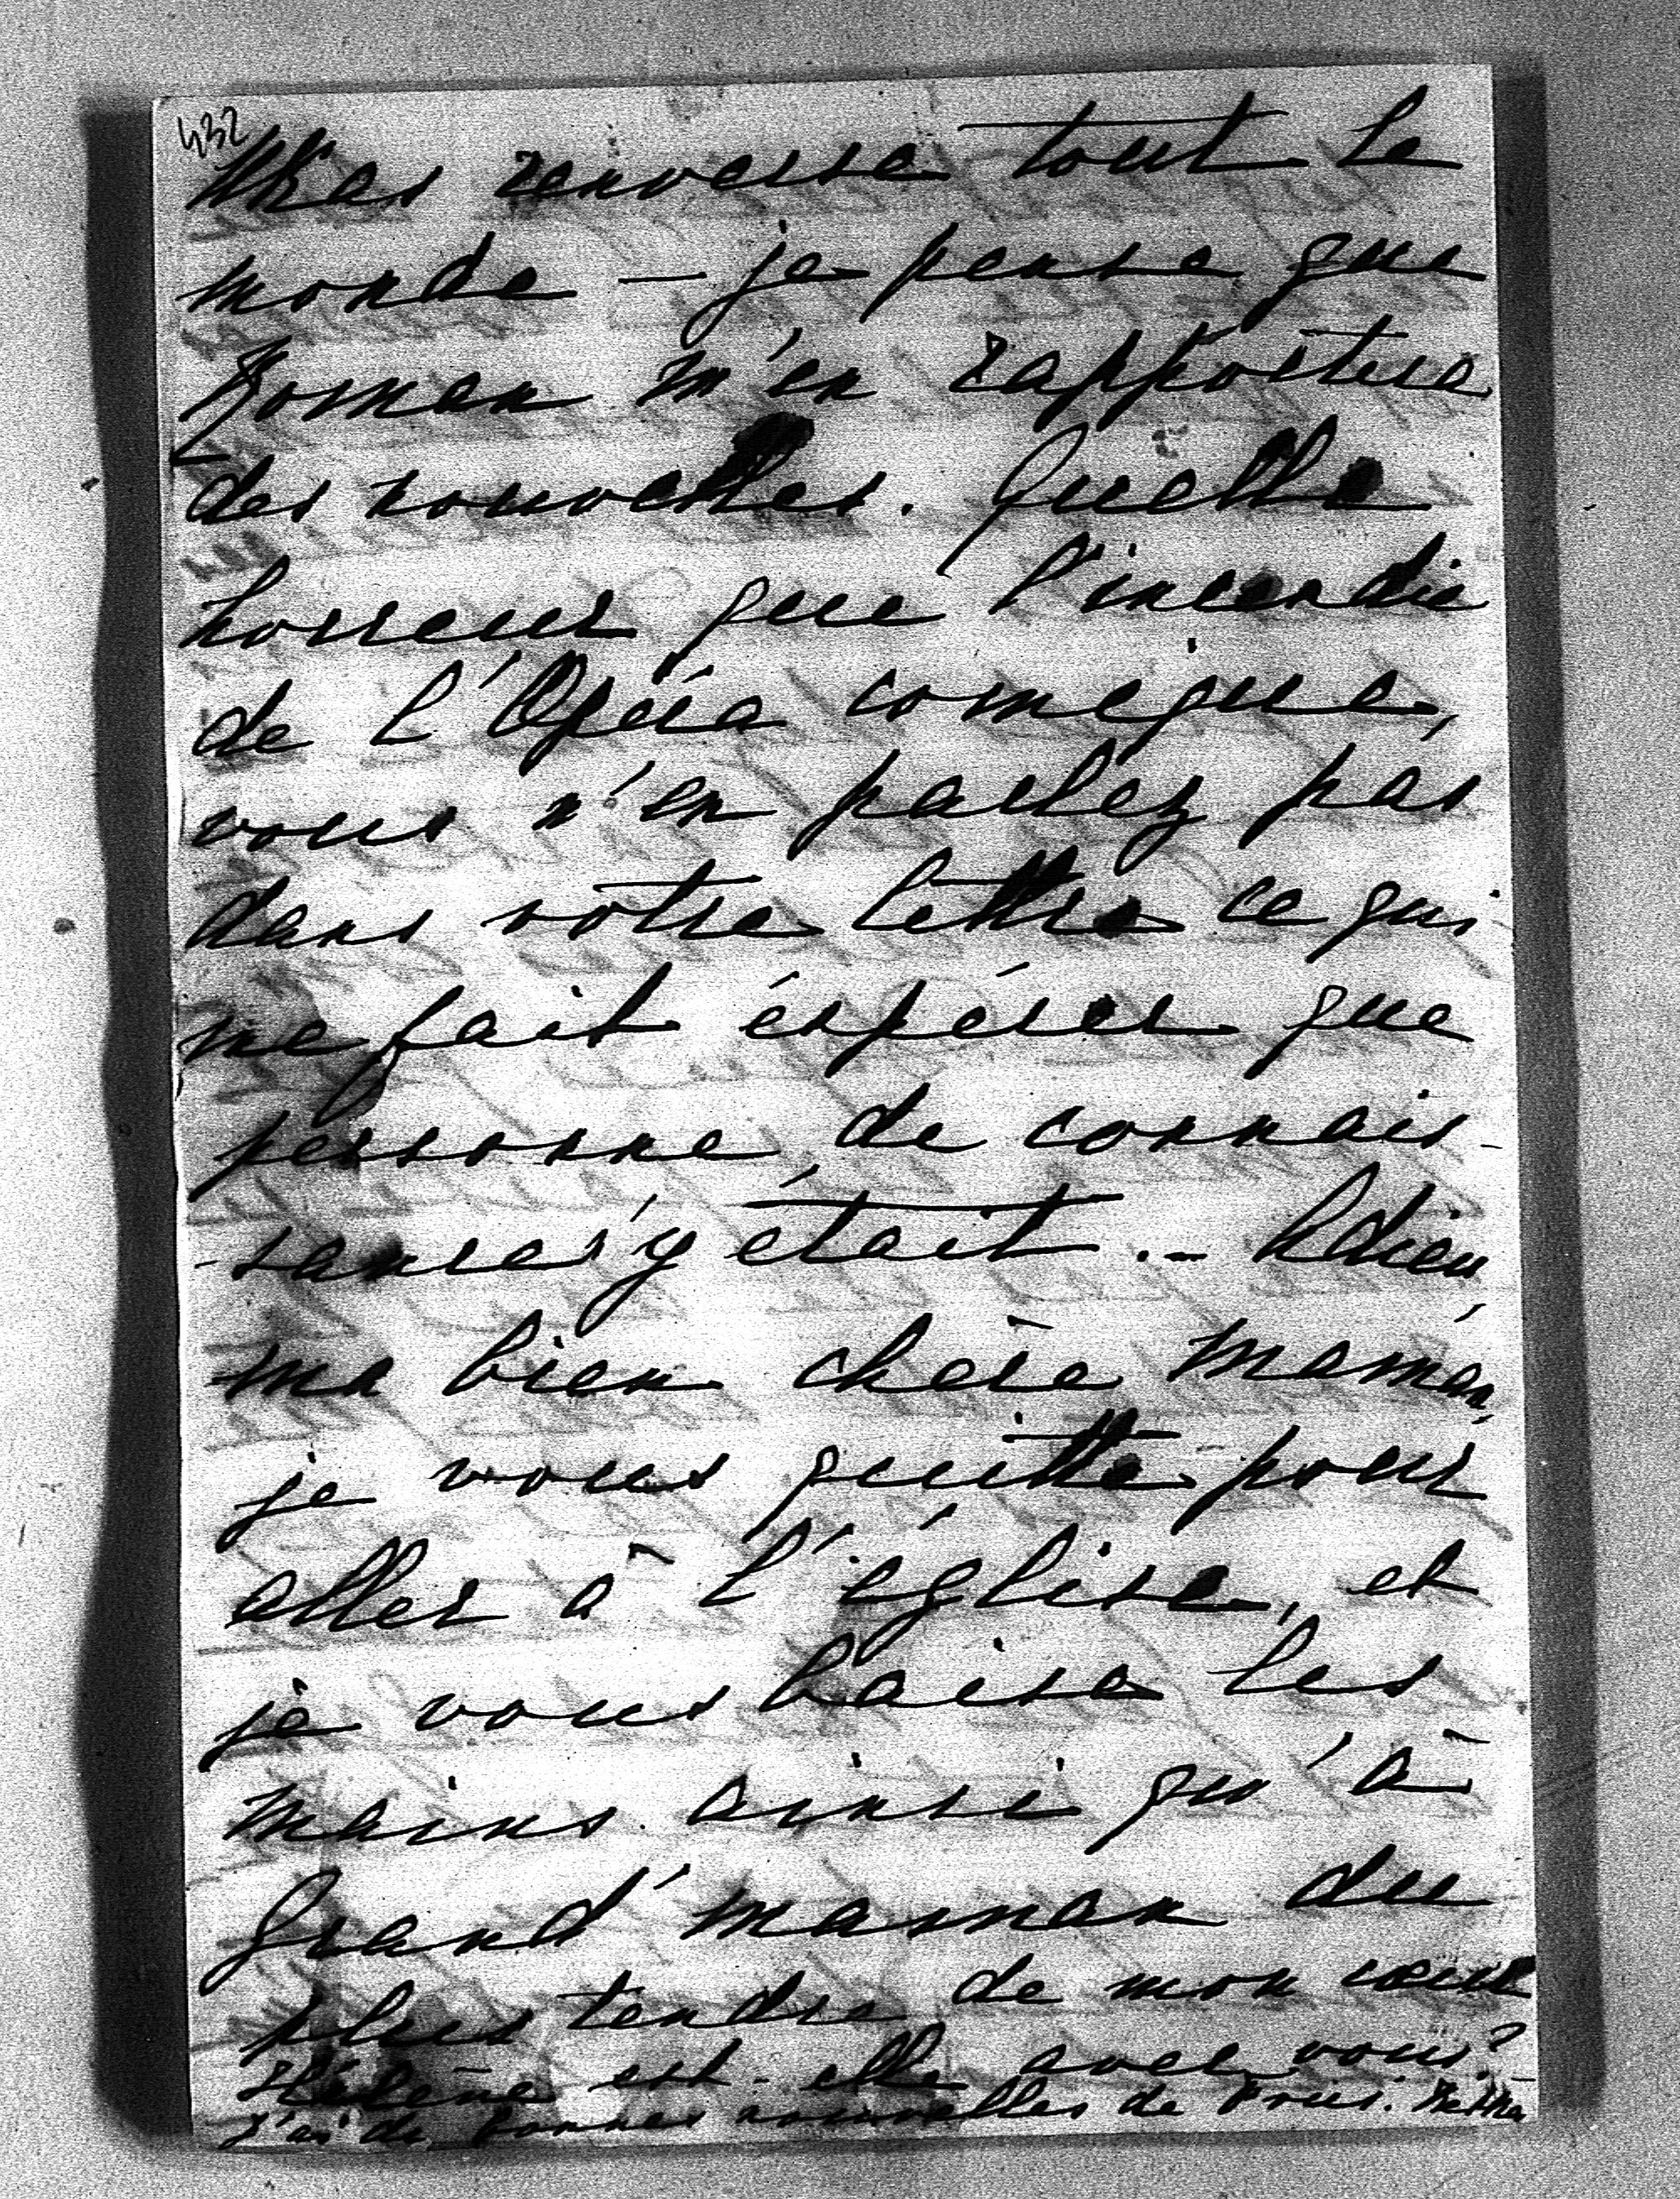 432
renverse tout le
monde — je pense que
Roman m'en rapportera
des nouvelles. Quelle
horreur que l'incendie
de l'Opéra comique,
vous n'en parlez pas
dans votre lettre ce qui
me fait éspérer que
personne de connais-
-sance n'y était. — Adieu
ma bien chère maman,
je vous quitte pour
aller à l'église, et
je vous baise les
mains ainsi qu'à
Grand'maman du
plus tendre de mon cœur
Hélène est-elle avec vous?
J'ai de bonnes nouvelles de